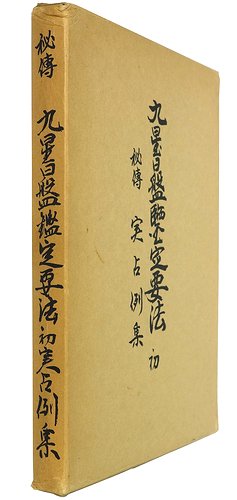 秘傳 九星日盤鑑定要法 初 実占例集
九星日盤鑑定要法 初
秘傳 実占例集